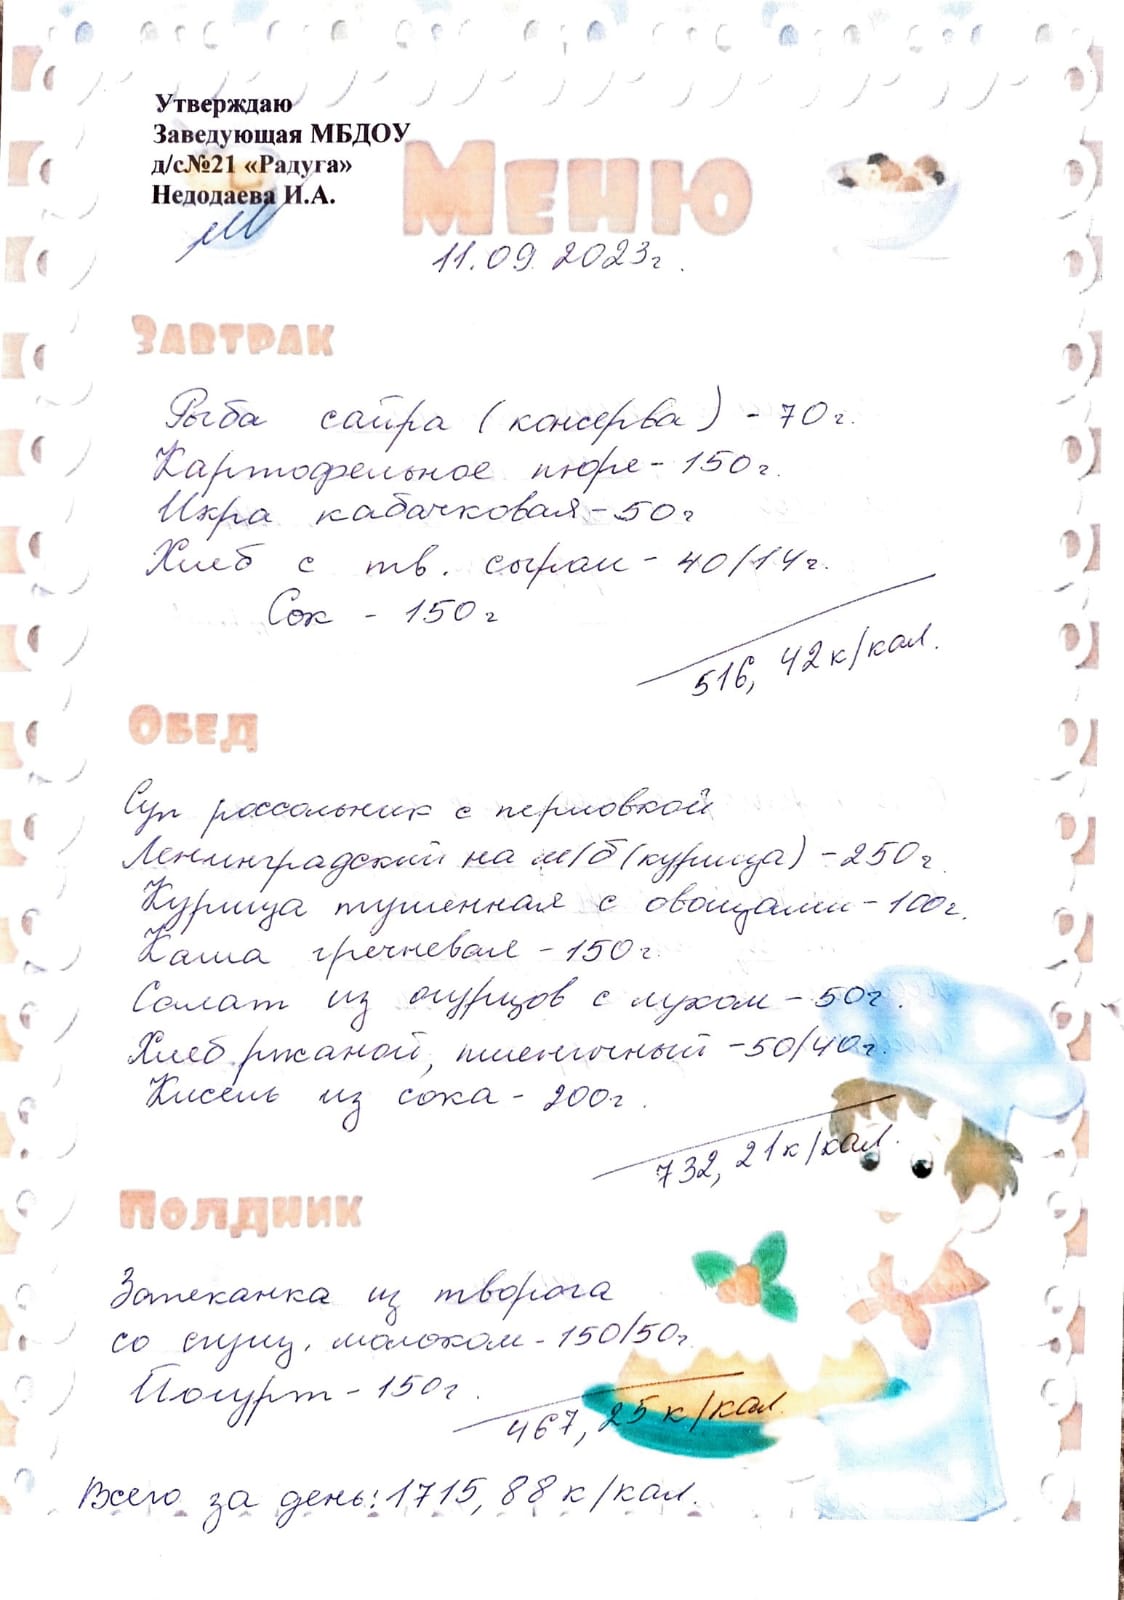 Утверждаю
Заведующая МБДОУ
д/с№21 «Радуга»
Недодаева И.А.
Меню
11.09.2023г.
Завтрак
Рыба сайра (консерва) - 70г.
Картофельное пюре - 150г.
Икра кабачковая - 50г
Хлеб с тв. сыром - 40/14г.
Сок - 150г
516,42 к/кал.
Обед
Суп рассольник с перловкой
Ленинградский на м/б (курица) - 250г.
Курица тушенная с овощами - 100г.
Каша гречневая - 150г.
Салат из огурцов с луком - 50г.
Хлеб ржаной, пшеничный - 50/40г.
Кисель из сока - 200г.
732,21 к/кал.
Полдник
Запеканка из творога
со сгущ. молоком - 150/50г.
Йогурт - 150г.
467,25 к/кал.
Всего за день: 1715,88 к/кал.